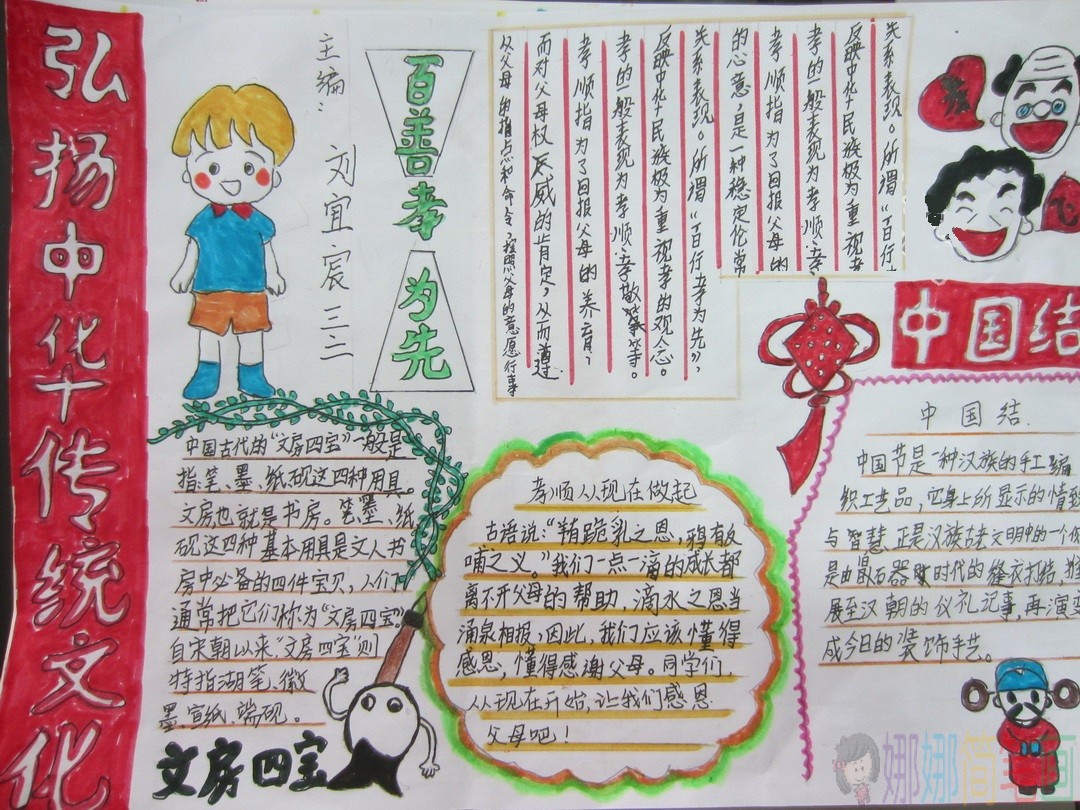 弘扬中华传统文化
主编：刘宜宸 三二
百善孝
为先
先系表现。所谓“百行
反映中华民族极为重视孝
孝的一般表现为孝顺、孝
孝顺指为了回报父母的
的心意，是一种稳定伦常
先系表现。所谓“百行孝为先”，
反映中华民族极为重视孝的观念。
孝的一般表现为孝顺、孝敬等等。
孝顺指为了回报父母的养育，
而对父母权威的肯定，从而遵
从父母的指点和命令，按照父母的意愿行事
中国结
中国结.
中国节是一种汉族的手工编
织工艺品，它身上所显示的情致
与智慧正是汉族古老文明中的一个侧
是由旧石器时代的缝衣打结，推
展至汉朝的仪礼记事，再演变
成今日的装饰手艺。
中国古代的“文房四宝”一般是
指：笔、墨、纸、砚这四种用具。
文房也就是书房。笔、墨、纸
砚这四种基本用具是文人书
房中必备的四件宝贝，人们
通常把它们称为“文房四宝”。
自宋朝以来“文房四宝”则
特指湖笔、徽
墨、宣纸、端砚。
文房四宝
孝顺从现在做起
古语说：“羊跪乳之恩，鸦有反
哺之义。”我们一点一滴的成长都
离不开父母的帮助，滴水之恩当
涌泉相报，因此，我们应该懂得
感恩，懂得感谢父母。同学们，
从现在开始，让我们感恩
父母吧！
娜娜简笔画